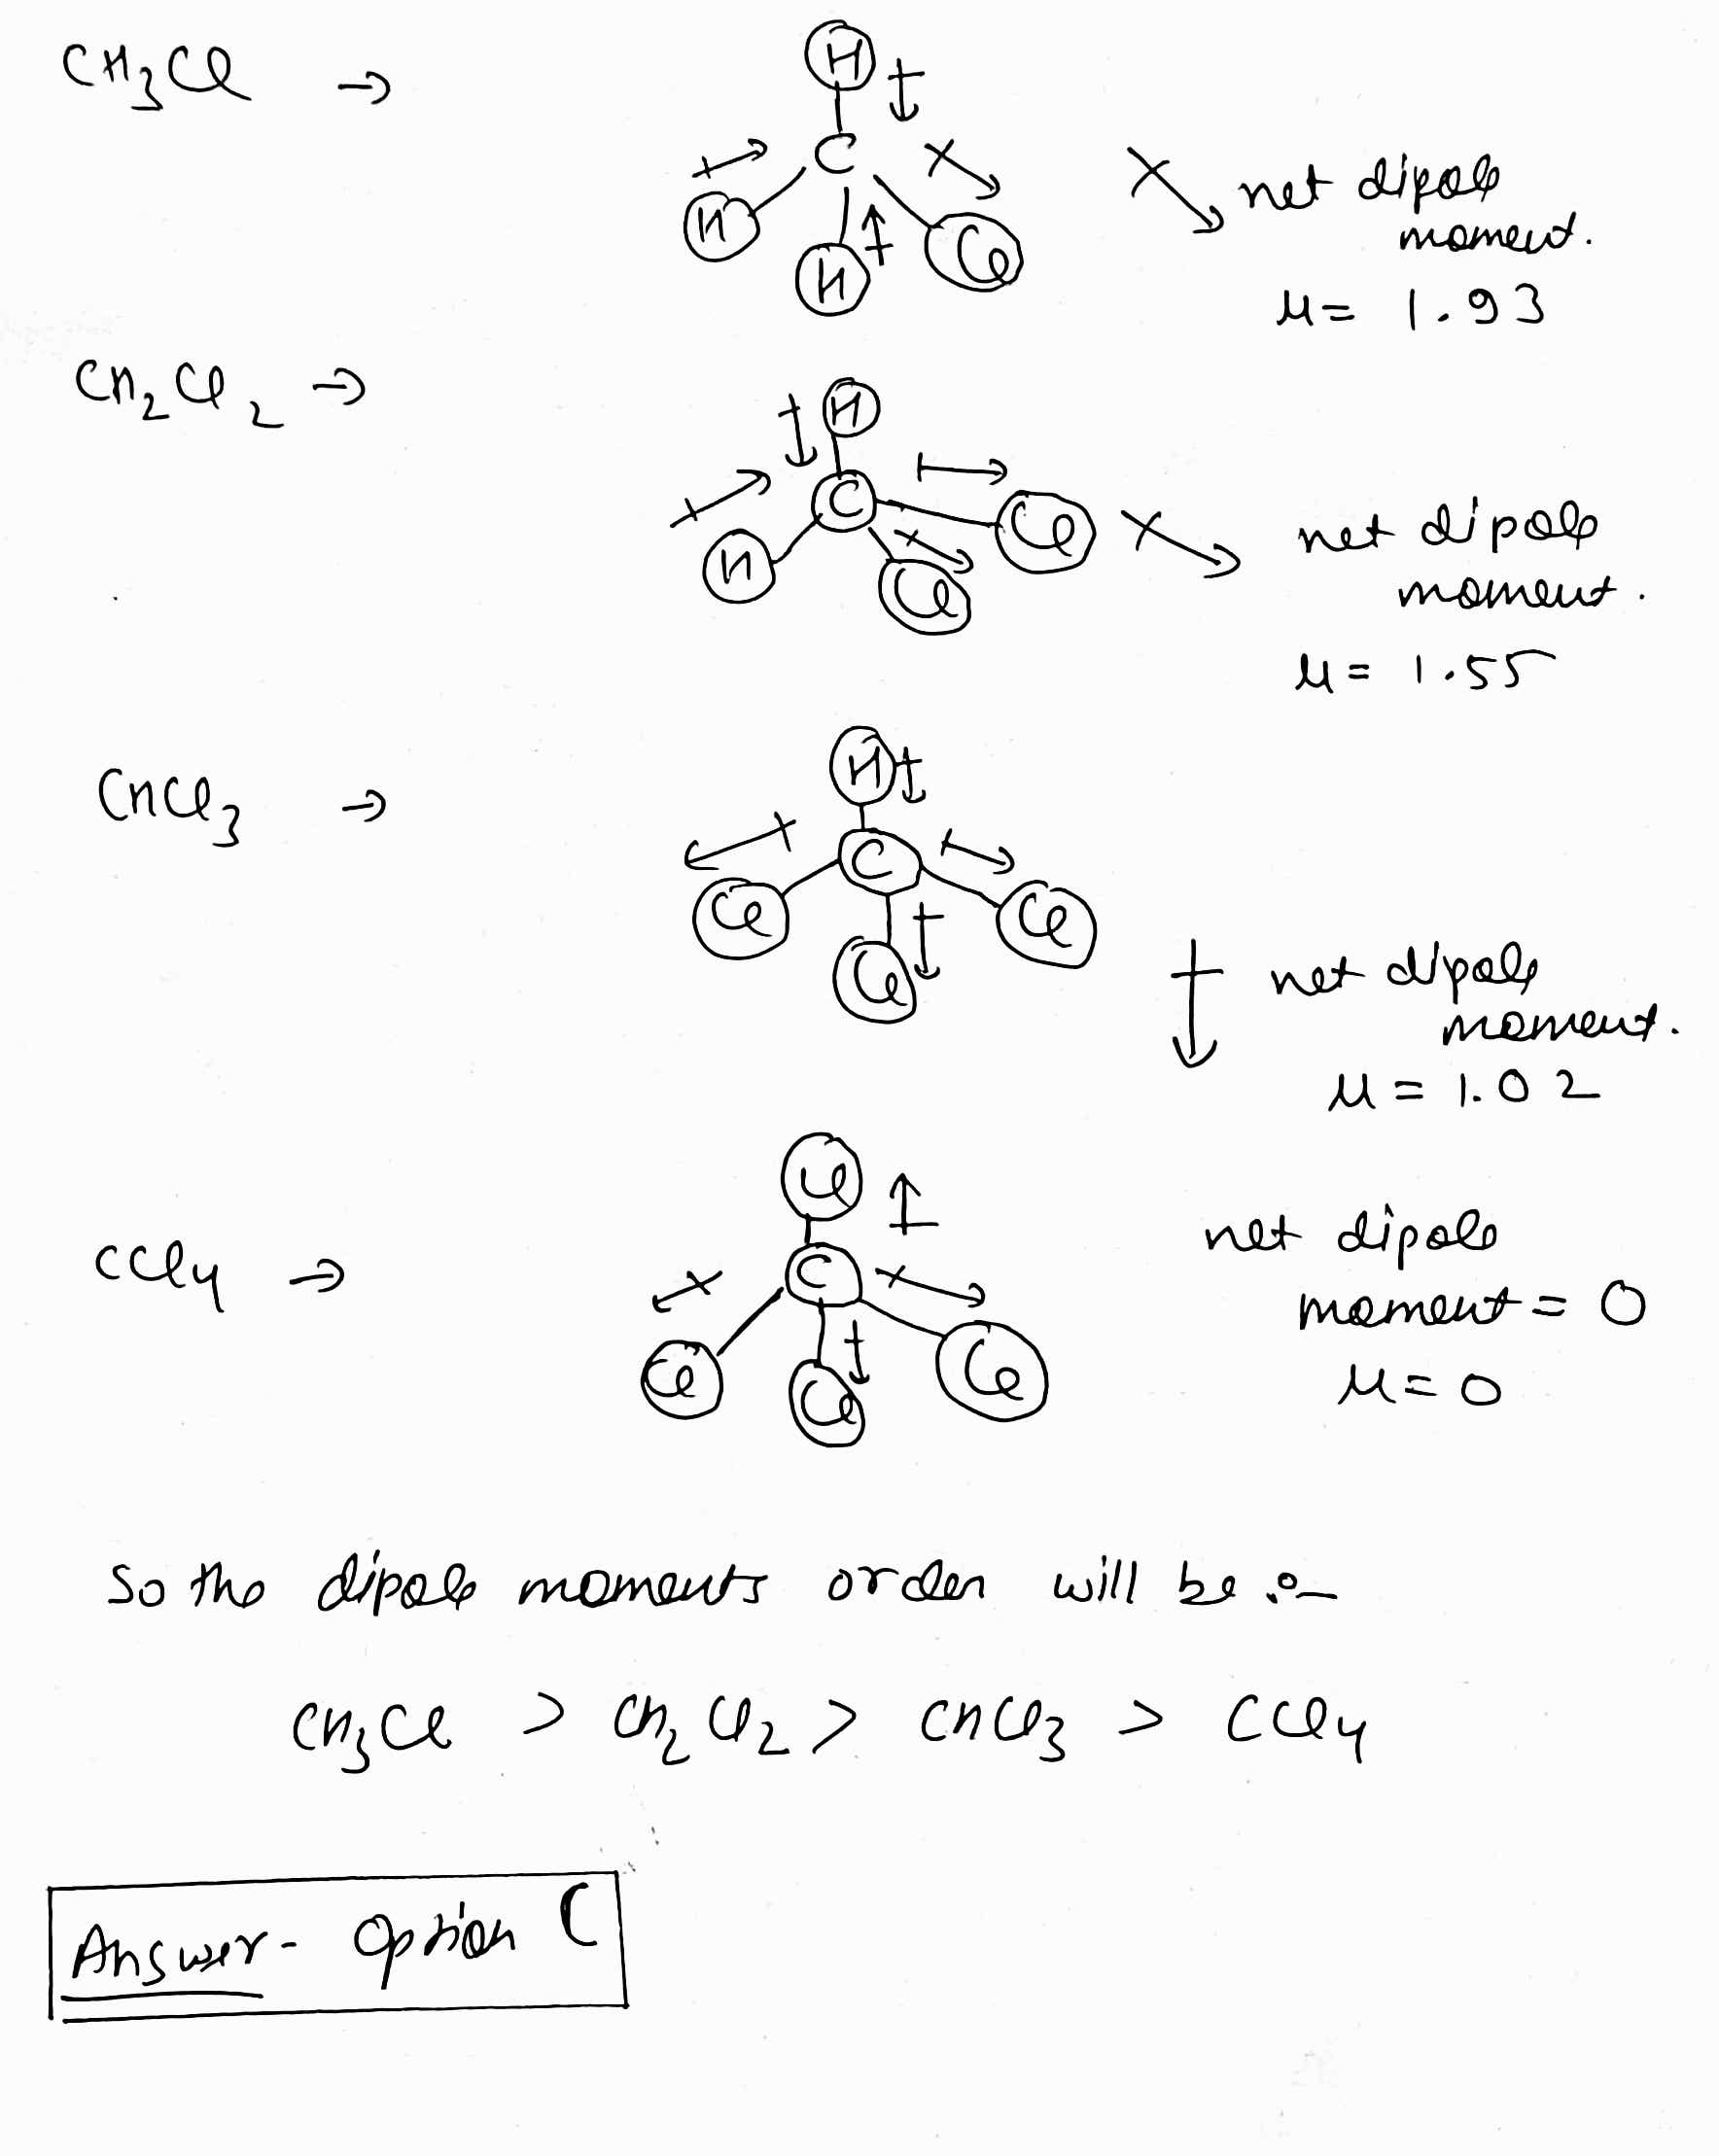 CH3Cl →
H
C
H
H
Cl
net dipole
moment.
μ = 1.93
CH2Cl2 →
H
C
Cl
H
Cl
net dipole
moment.
μ = 1.55
CHCl3 →
H
C
Cl
Cl
Cl
net dipole
moment.
μ = 1.02
CCl4 →
Cl
C
Cl
Cl
Cl
net dipole
moment = 0
μ = 0
So the dipole moments order will be :-
CH3Cl > CH2Cl2 > CHCl3 > CCl4
Answer - Option C